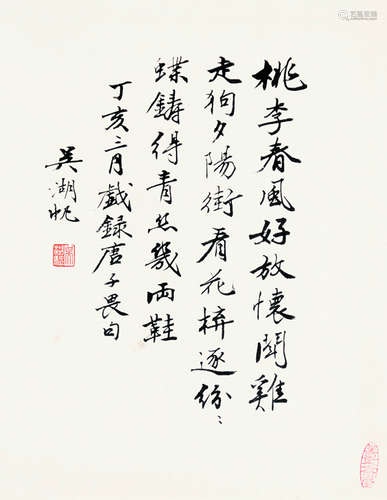 桃李春風好放懷鬪雞
走狗夕陽街看花拚逐紛〻
蝶鑄得青絲幾兩鞋
丁亥三月戲録唐子畏句
吳湖帆